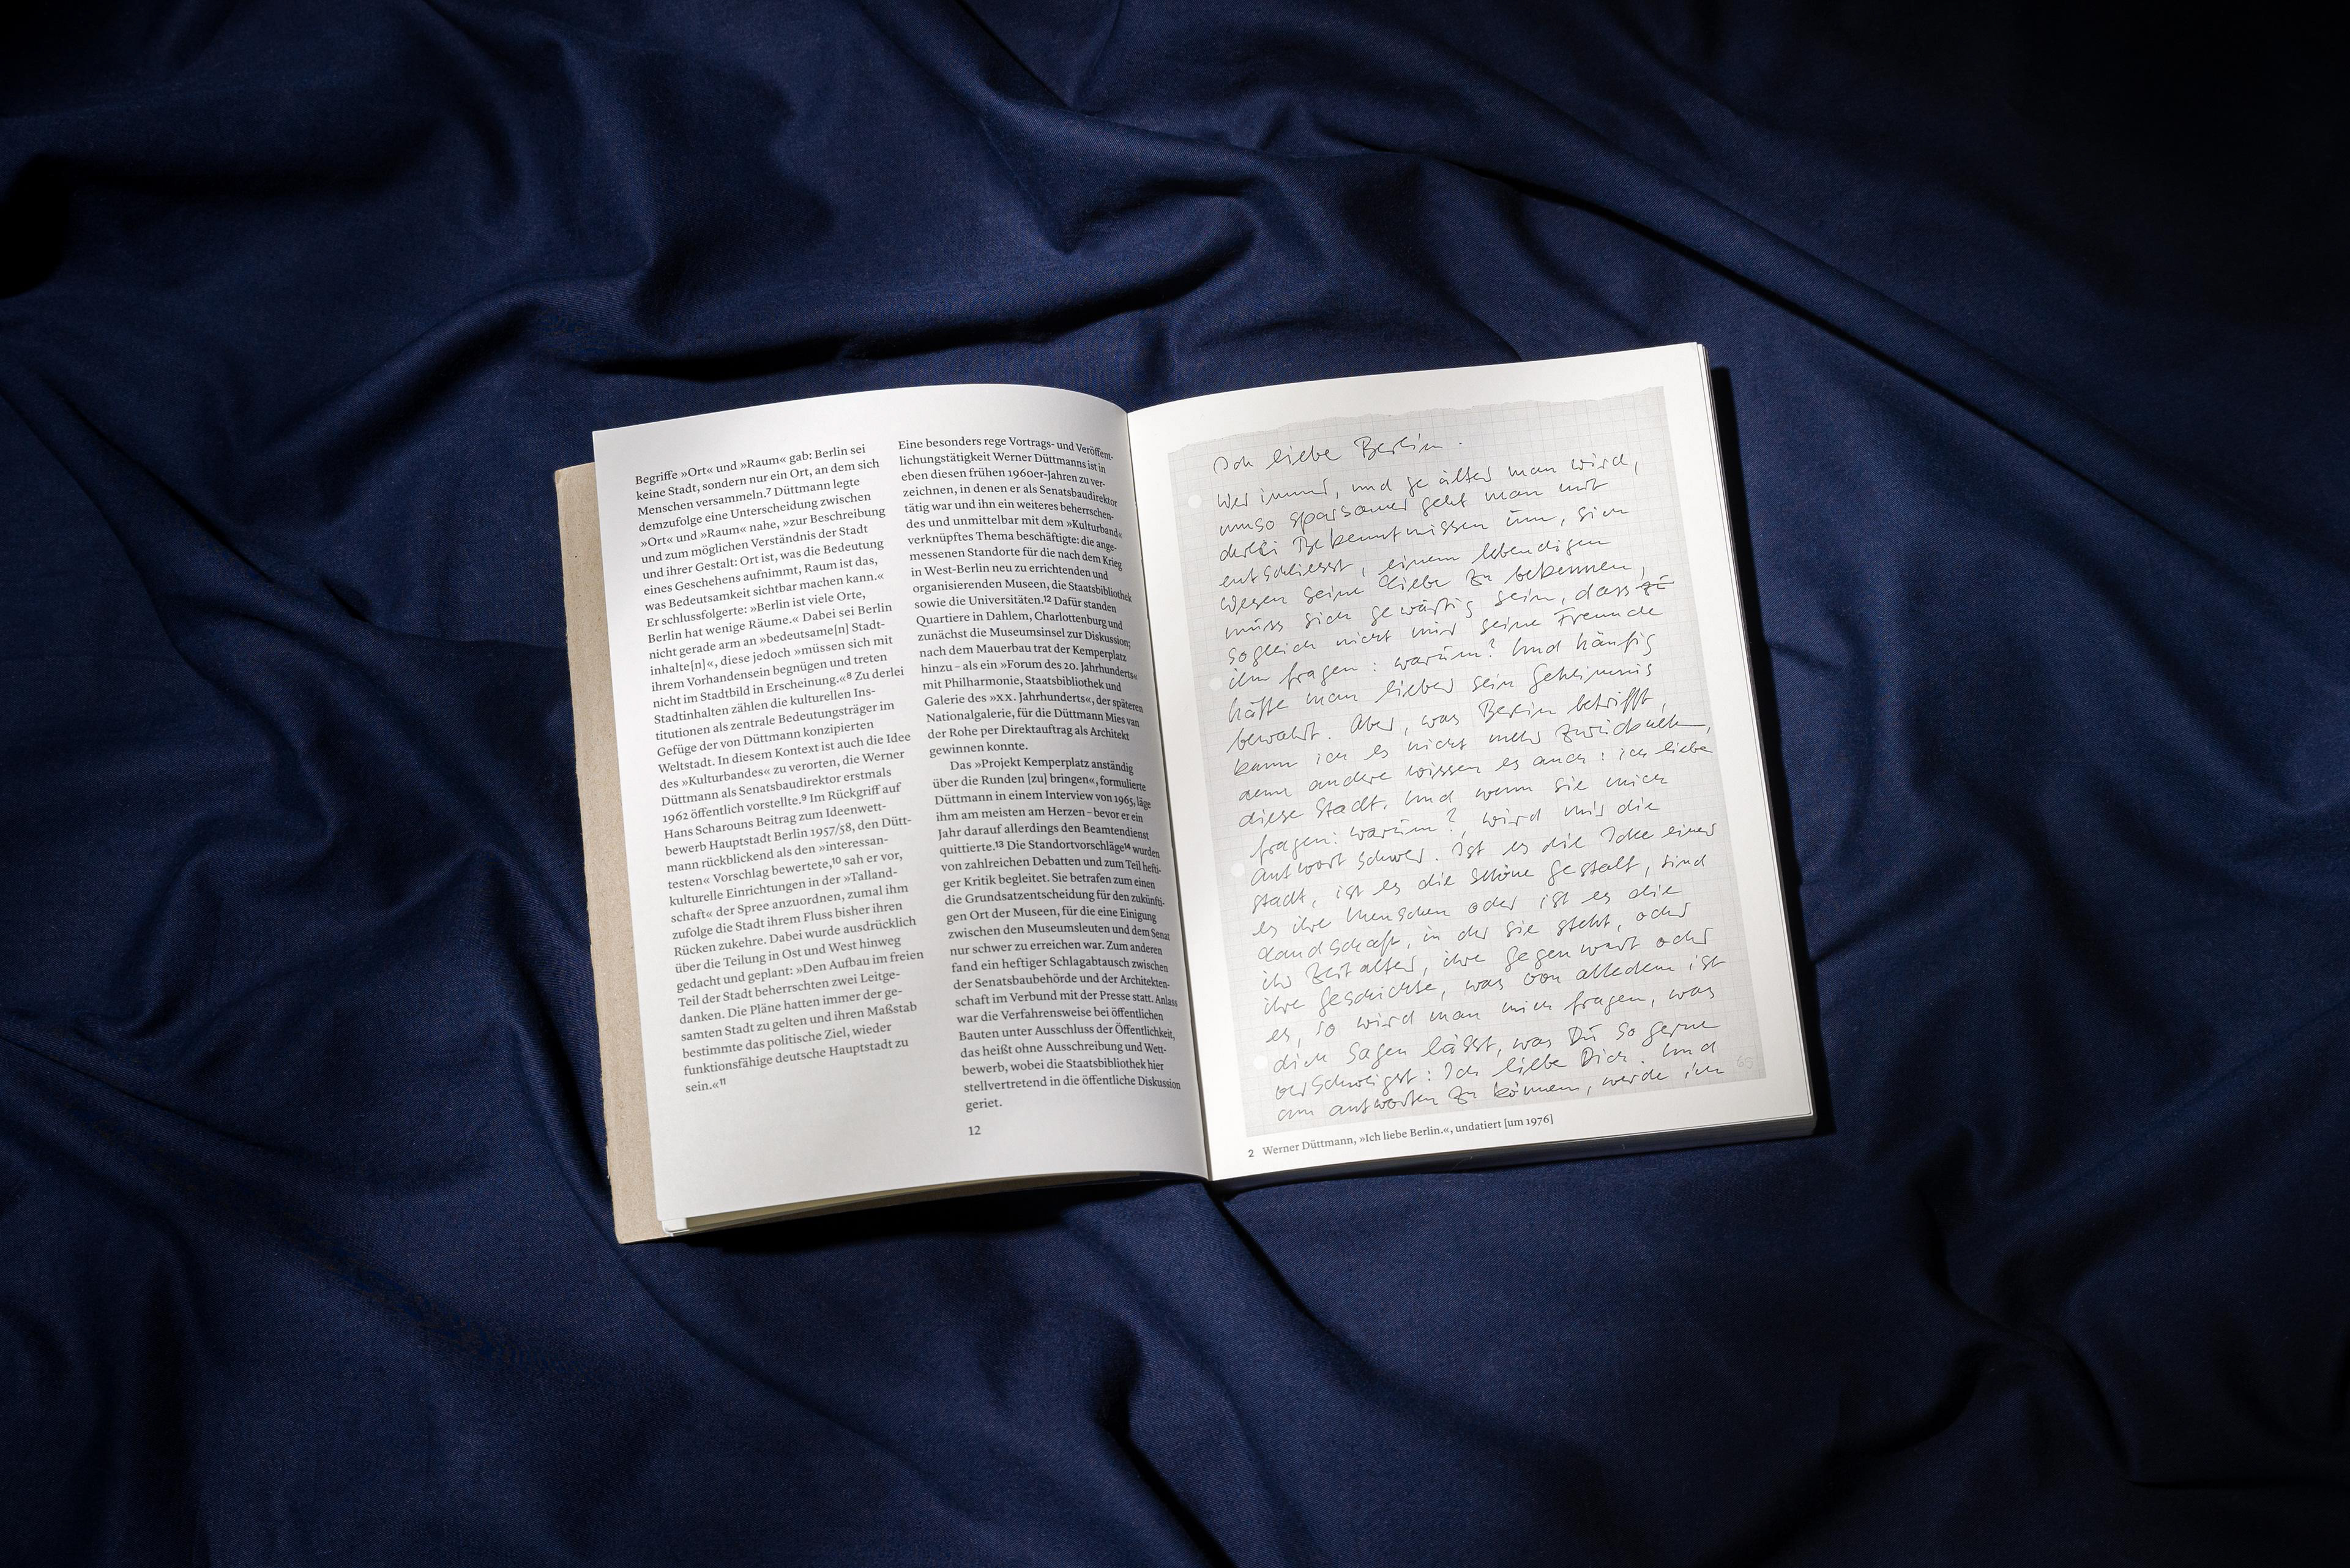 Begriffe »Ort« und »Raum« gab: Berlin sei
keine Stadt, sondern nur ein Ort, an dem sich
Menschen versammeln.⁷ Düttmann legte
demzufolge eine Unterscheidung zwischen
»Ort« und »Raum« nahe, »zur Beschreibung
und zum möglichen Verständnis der Stadt
und ihrer Gestalt: Ort ist, was die Bedeutung
eines Geschehens aufnimmt, Raum ist das,
was Bedeutsamkeit sichtbar machen kann.«
Er schlussfolgerte: »Berlin ist viele Orte,
Berlin hat wenige Räume.« Dabei sei Berlin
nicht gerade arm an »bedeutsame[n] Stadt-
inhalte[n]«, diese jedoch »müssen sich mit
ihrem Vorhandensein begnügen und treten
nicht im Stadtbild in Erscheinung.«⁸ Zu derlei
Stadtinhalten zählen die kulturellen Ins-
titutionen als zentrale Bedeutungsträger im
Gefüge der von Düttmann konzipierten
Weltstadt. In diesem Kontext ist auch die Idee
des »Kulturbandes« zu verorten, die Werner
Düttmann als Senatsbaudirektor erstmals
1962 öffentlich vorstellte.⁹ Im Rückgriff auf
Hans Scharouns Beitrag zum Ideenwett-
bewerb Hauptstadt Berlin 1957/58, den Dütt-
mann rückblickend als den »interessan-
testen« Vorschlag bewertete,¹⁰ sah er vor,
kulturelle Einrichtungen in der »Talland-
schaft« der Spree anzuordnen, zumal ihm
zufolge die Stadt ihrem Fluss bisher ihren
Rücken zukehre. Dabei wurde ausdrücklich
über die Teilung in Ost und West hinweg
gedacht und geplant: »Den Aufbau im freien
Teil der Stadt beherrschten zwei Leitge-
danken. Die Pläne hatten immer der ge-
samten Stadt zu gelten und ihren Maßstab
bestimmte das politische Ziel, wieder
funktionsfähige deutsche Hauptstadt zu
sein.«¹¹
Eine besonders rege Vortrags- und Veröffent-
lichungstätigkeit Werner Düttmanns ist in
eben diesen frühen 1960er-Jahren zu ver-
zeichnen, in denen er als Senatsbaudirektor
tätig war und ihn ein weiteres beherrschen-
des und unmittelbar mit dem »Kulturband«
verknüpftes Thema beschäftigte: die ange-
messenen Standorte für die nach dem Krieg
in West-Berlin neu zu errichtenden und
organisierenden Museen, die Staatsbibliothek
sowie die Universitäten.¹² Dafür standen
Quartiere in Dahlem, Charlottenburg und
zunächst die Museumsinsel zur Diskussion;
nach dem Mauerbau trat der Kemperplatz
hinzu – als ein »Forum des 20. Jahrhunderts«
mit Philharmonie, Staatsbibliothek und
Galerie des »XX. Jahrhunderts«, der späteren
Nationalgalerie, für die Düttmann Mies van
der Rohe per Direktauftrag als Architekt
gewinnen konnte.
Das »Projekt Kemperplatz anständig
über die Runden [zu] bringen«, formulierte
Düttmann in einem Interview von 1965, läge
ihm am meisten am Herzen – bevor er ein
Jahr darauf allerdings den Beamtendienst
quittierte.¹³ Die Standortvorschläge¹⁴ wurden
von zahlreichen Debatten und zum Teil hefti-
ger Kritik begleitet. Sie betrafen zum einen
die Grundsatzentscheidung für den zukünfti-
gen Ort der Museen, für die eine Einigung
zwischen den Museumsleuten und dem Senat
nur schwer zu erreichen war. Zum anderen
fand ein heftiger Schlagabtausch zwischen
der Senatsbaubehörde und der Architekten-
schaft im Verbund mit der Presse statt. Anlass
war die Verfahrensweise bei öffentlichen
Bauten unter Ausschluss der Öffentlichkeit,
das heißt ohne Ausschreibung und Wett-
bewerb, wobei die Staatsbibliothek hier
stellvertretend in die öffentliche Diskussion
geriet.
12
Ich liebe Berlin.
Wer immer, und je älter man wird,
umso sparsamer geht man mit
derlei Bekenntnissen um, sich
entschliesst, einem lebendigen
Wesen seine Liebe zu bekennen,
muss sich gewärtig sein, dass zu
sogleich nicht nur seine Freunde
ihn fragen: warum? Und häufig
hätte man lieber sein Geheimnis
bewahrt. Aber, was Berlin betrifft,
kann ich es nicht mehr zurücknehmen,
denn andere wissen es auch: ich liebe
diese Stadt. Und wenn Sie mich
fragen: warum?, wird mir die
Antwort schwer. Ist es die Idee einer
Stadt, ist es die schöne Gestalt, sind
es ihre Menschen oder ist es die
Landschaft, in der sie steht, oder
ihr Zeitalter, ihre Gegenwart oder
ihre Geschichte, was von alledem ist
es, so wird man mich fragen, was
dich sagen lässt, was Du so gerne
verschweigst: Ich liebe Dich. Und
um antworten zu können, werde ich
65
2 Werner Düttmann, »Ich liebe Berlin.«, undatiert [um 1976]